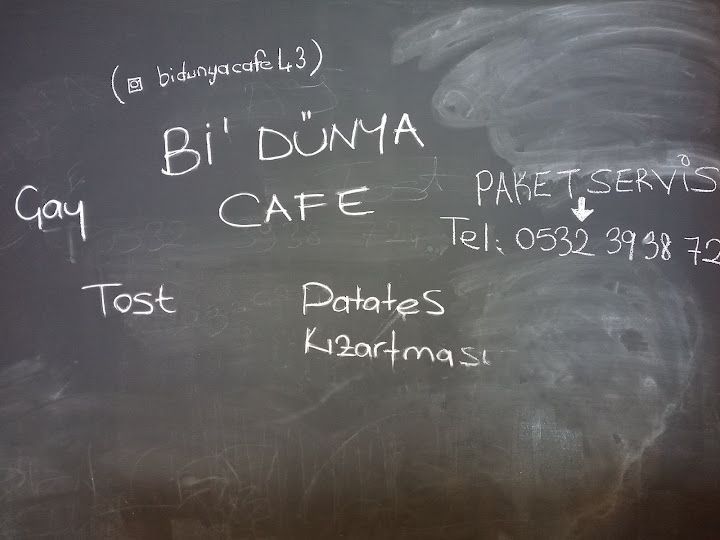 (bidunyacafe43)
Bi' DÜNYA
CAFE
Çay
PAKET SERVİS
Tel: 0532 3938 72
Tost
Patates
Kızartması